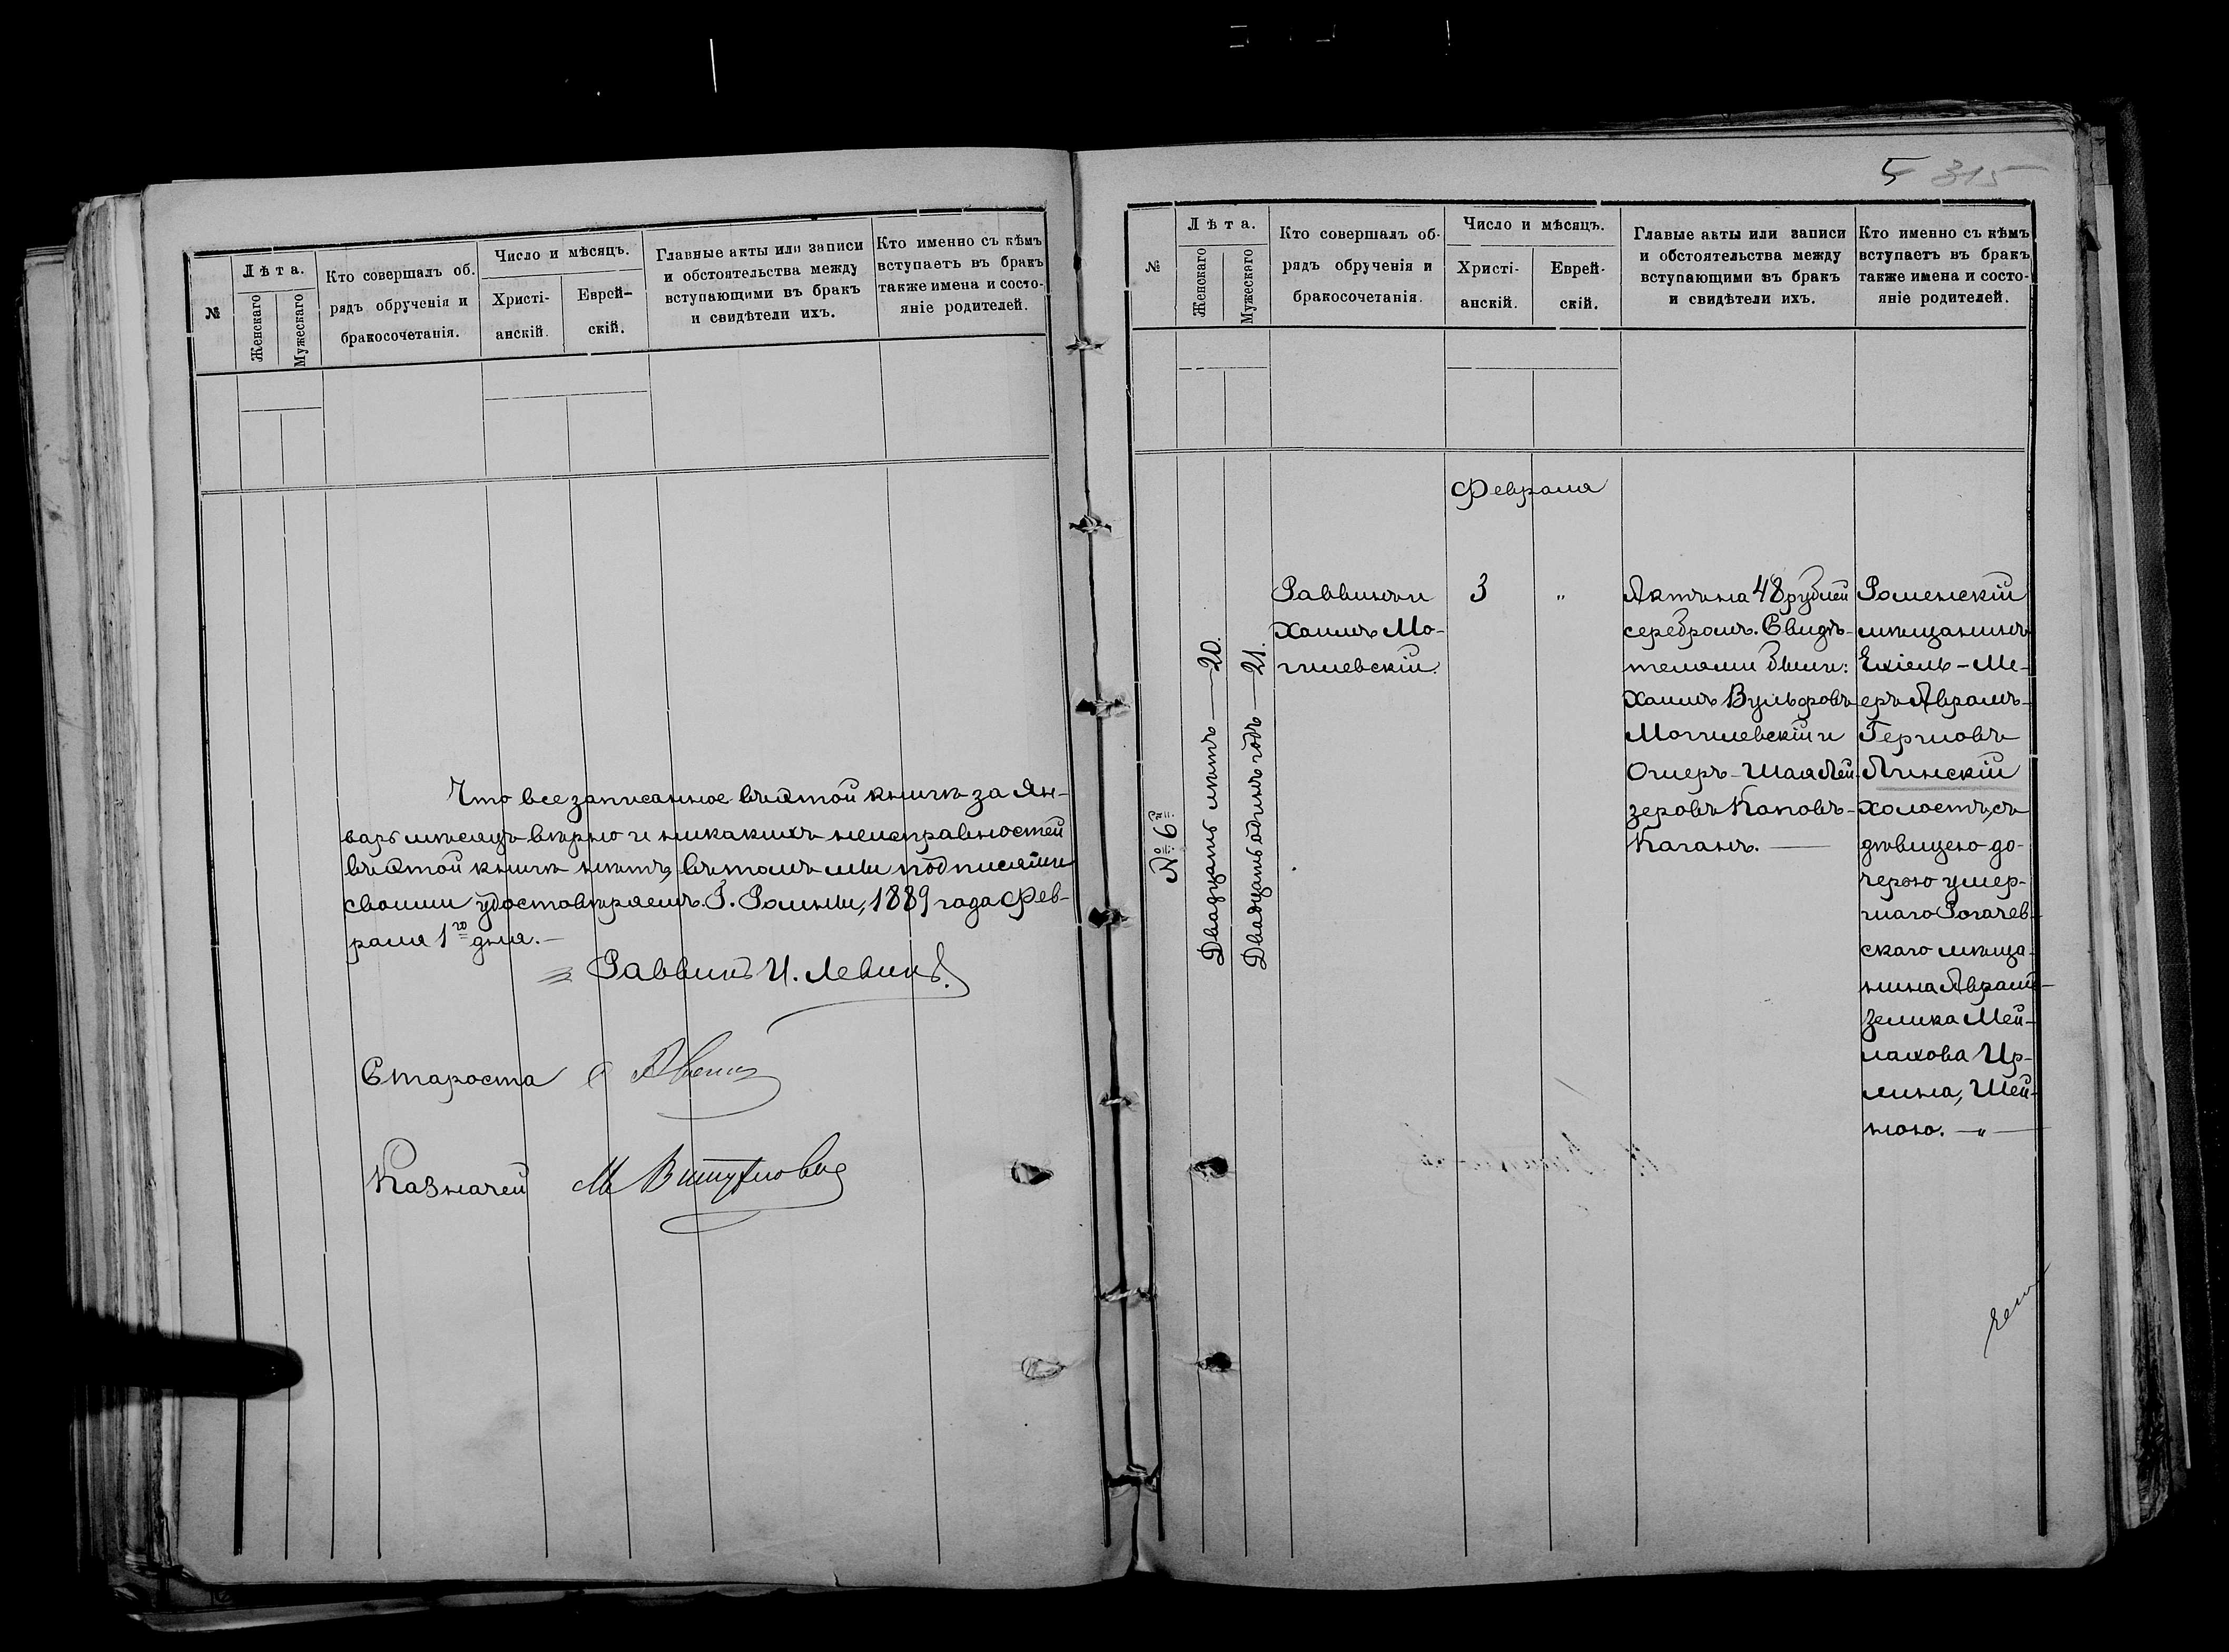 №
Лѣта.
Женскаго
Мужескаго
Кто совершалъ об.
рядъ обрученія и
бракосочетанія.
Число и мѣсяцъ.
Христі-
анскій.
Еврей-
скій.
Главные акты или записи
и обстоятельства между
вступающими въ бракъ
и свидѣтели ихъ.
Кто именно съ кѣмъ
вступаетъ въ бракъ
также имена и состо-
яніе родителей.
Что все записанное въ этой книгѣ за Ян-
варь мѣсяцъ вѣрно и никакихъ неисправностей
въ этой книгѣ нѣтъ, въ томъ мы подписями
своими удостовѣряемъ. Г. Ромны, 1889 года Фев-
раля 1го дня.
Раввинъ И. Левинъ.
Староста
Казначей М
5 315
№
Лѣта.
Женскаго
Мужескаго
Кто совершалъ об-
рядъ обрученія и
бракосочетанія.
Число и мѣсяцъ.
Христі-
анскій.
Еврей-
скій.
Главые акты или записи
и обстоятельства между
вступающими въ бракъ
и свидѣтели ихъ.
Кто именно съ кѣмъ
вступаетъ въ бракъ
также имена и состо-
яніе родителей.
Февраля
№ 6й
Двадцать лѣтъ — 20.
Двадцать одинъ годъ — 21.
Раввинъ
Хаимъ Мо-
гилевскій.
3 "
Актъ на 48 рублей
серебромъ. Свидѣ-
телями были:
Хаимъ Вульфовъ
Могилевскій и
Ошеръ-Шая Лей-
зеровъ Каповъ-
Каганъ. —
Роменскій
мѣщанинъ
Ехіель-Ме-
еръ Аврамъ-
Гершовъ
Пинскій
холостъ, съ
дѣвицею до-
черою умер-
шаго Рогачев-
скаго мѣща-
нина Аврам-
Зелика Мей-
лахова Ир-
лина, Шей-
ною. — " —